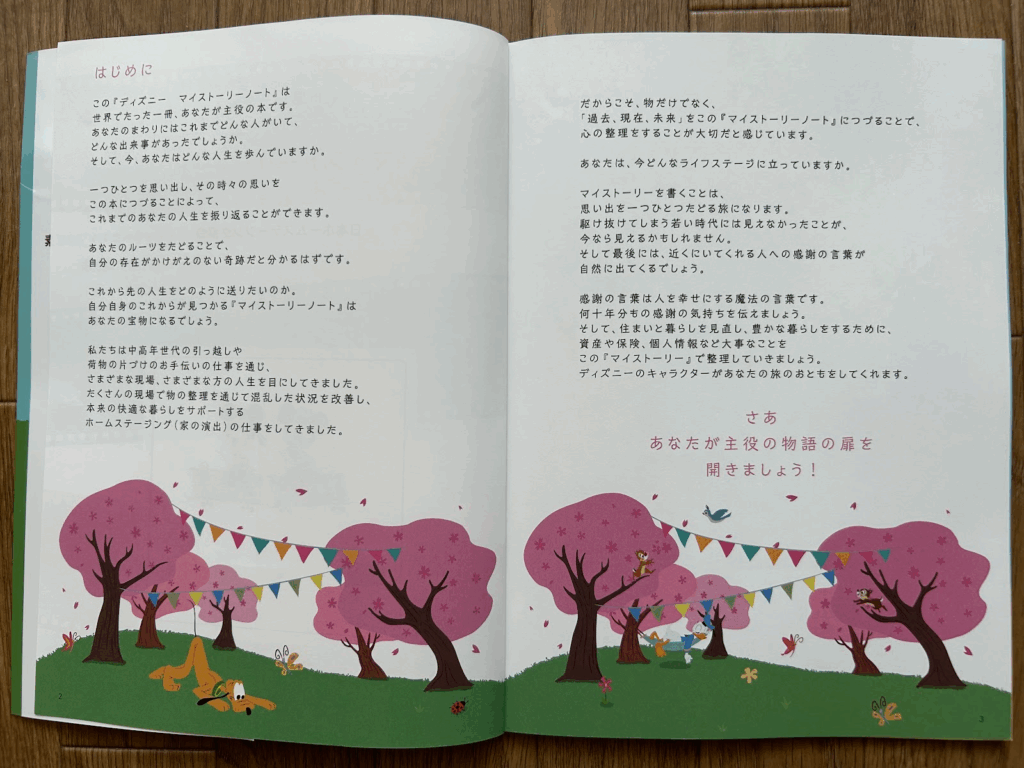 はじめに
この『ディズニー　マイストーリーノート』は
世界でたった一冊、あなたが主役の本です。
あなたのまわりにはこれまでどんな人がいて、
どんな出来事があったでしょうか。
そして、今、あなたはどんな人生を歩んでいますか。
一つひとつを思い出し、その時々の思いを
この本につづることによって、
これまでのあなたの人生を振り返ることができます。
あなたのルーツをたどることで、
自分の存在がかけがえのない奇跡だと分かるはずです。
これから先の人生をどのように送りたいのか。
自分自身のこれからが見つかる『マイストーリーノート』は
あなたの宝物になるでしょう。
私たちは中高年世代の引っ越しや
荷物の片づけのお手伝いの仕事を通じ、
さまざまな現場、さまざまな方の人生を目にしてきました。
たくさんの現場で物の整理を通じて混乱した状況を改善し、
本来の快適な暮らしをサポートする
ホームステージング（家の演出）の仕事をしてきました。
2
だからこそ、物だけでなく、
「過去、現在、未来」をこの『マイストーリーノート』につづることで、
心の整理をすることが大切だと感じています。
あなたは、今どんなライフステージに立っていますか。
マイストーリーを書くことは、
思い出を一つひとつたどる旅になります。
駆け抜けてしまう若い時代には見えなかったことが、
今なら見えるかもしれません。
そして最後には、近くにいてくれる人への感謝の言葉が
自然に出てくるでしょう。
感謝の言葉は人を幸せにする魔法の言葉です。
何十年分もの感謝の気持ちを伝えましょう。
そして、住まいと暮らしを見直し、豊かな暮らしをするために、
資産や保険、個人情報など大事なことを
この『マイストーリー』で整理していきましょう。
ディズニーのキャラクターがあなたの旅のおともをしてくれます。
さあ
あなたが主役の物語の扉を
開きましょう！
3